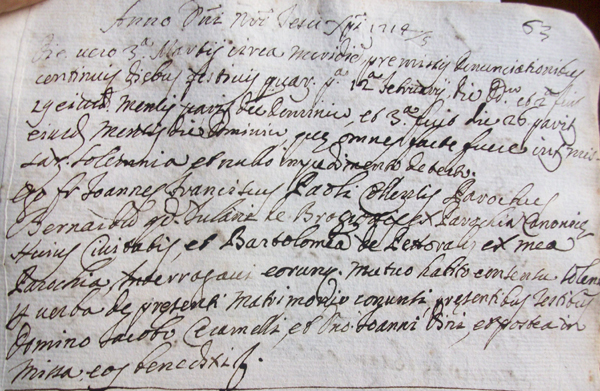 Anno Dni Nri Jesu Xpi 1714 63
Die vero 3ª Martis circa meridie premissis denunciationibus
continuis diebus festivis quar. pª 12ª februarij die et 2ª fuit
19 eiusd. mensis pariter die Dominico et 3ª fuit die 26 pariter
eiusd. mensis die Dominico que omnes facte fuere inter mis-
sar. solemnia et nullo impedimento detecto
ego fr Joannes Franciscus Paoli Parochus
Bernardu qd. Iuliani de ex Parochia Canonica
Huius Civitatis, et Bartolomea de Pettorani ex mea
Parochia, Interrogavi eorunq. mutuo habito consensu solene
p verba de presenti Matrimonio coniunxi, presentibus testibus
Domino Iacobo Ciamelli, et Dno Ioanni Bri, et postea in
missa eos benedixi